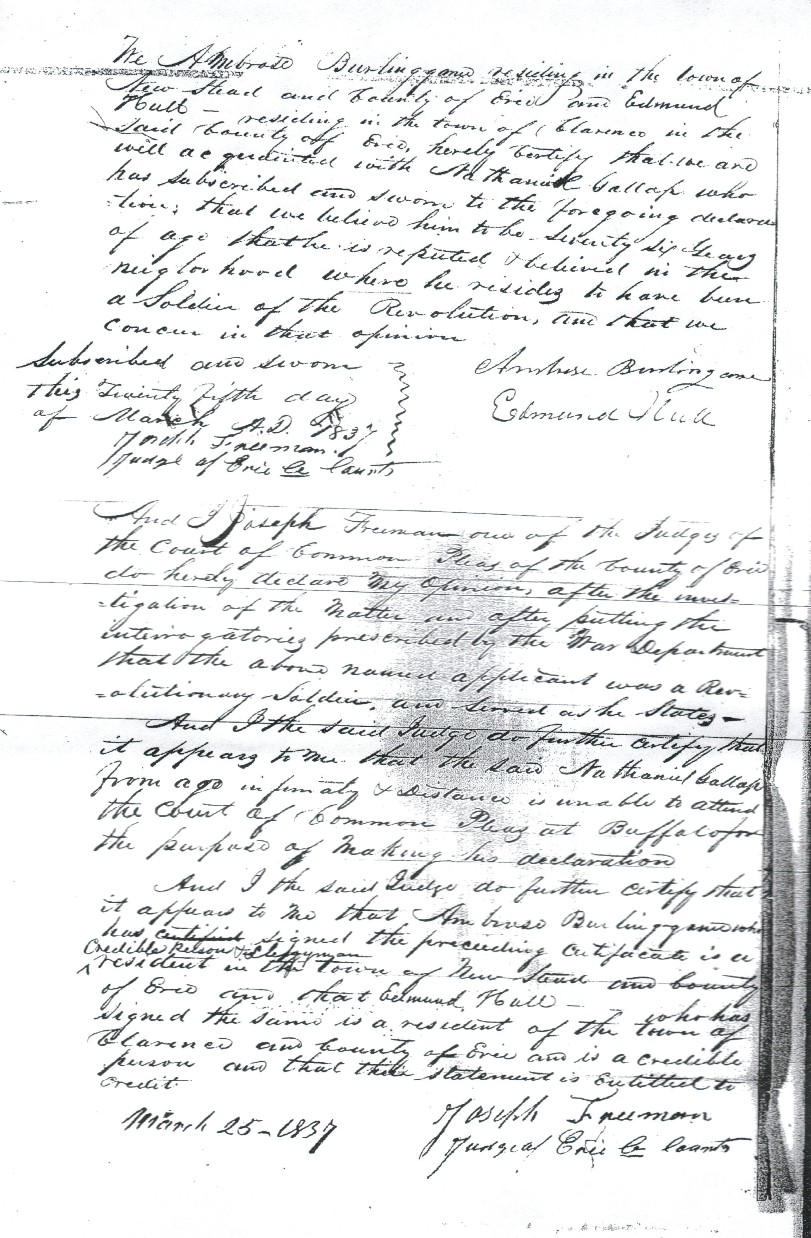 We Ambrose Burlinggame residing in the town of
New Stead and County of Erie and Edmund
Hull - residing in the town of Clarence in the
said County of Erie, hereby Certify that we are
well acquainted with Nathaniel Gallap who
has subscribed and sworn to the foregoing declara
-tion; that we believe him to be Seventy Six Years
of age that he is reputed & believed in the
neighborhood where he resides to have been
a Soldier of the Revolution, and that we
concur in that opinion
Subscribed and sworn
this Twenty fifth day
of March A.D. 1837
Joseph Freeman
Judge of Erie Co Counts
Ambrose Burlingame
Edmund Hull
And I Joseph Freeman one of the Judges of
the Court of Common Pleas of the County of Erie
do hereby declare My Opinion, after the inves-
-tigation of the Matter and after putting the
interrogatories prescribed by the War Department
that the above named applicant was a Rev-
-olutionary Soldier, and served as he States -
And I the said Judge do further certify that
it appears to Me that the said Nathaniel Gallap
from age infirmaty & Distance is unable to attend
the Court of Common Pleas at Buffalo for
the purpose of Making his declaration
And I the said Judge do further certify that
it appears to Me that Ambrose Burlinggame who
has certified signed the preceeding certifacate is a
Credible person & Clergyman
resident in the town of New Stead and County
of Erie and that Edmund Hull - who has
signed the same is a resident of the town of
Clarence and County of Erie and is a credible
person and that their statement is entitled to
credit
March 25 - 1837
Joseph Freeman
Judge of Erie Co Counts